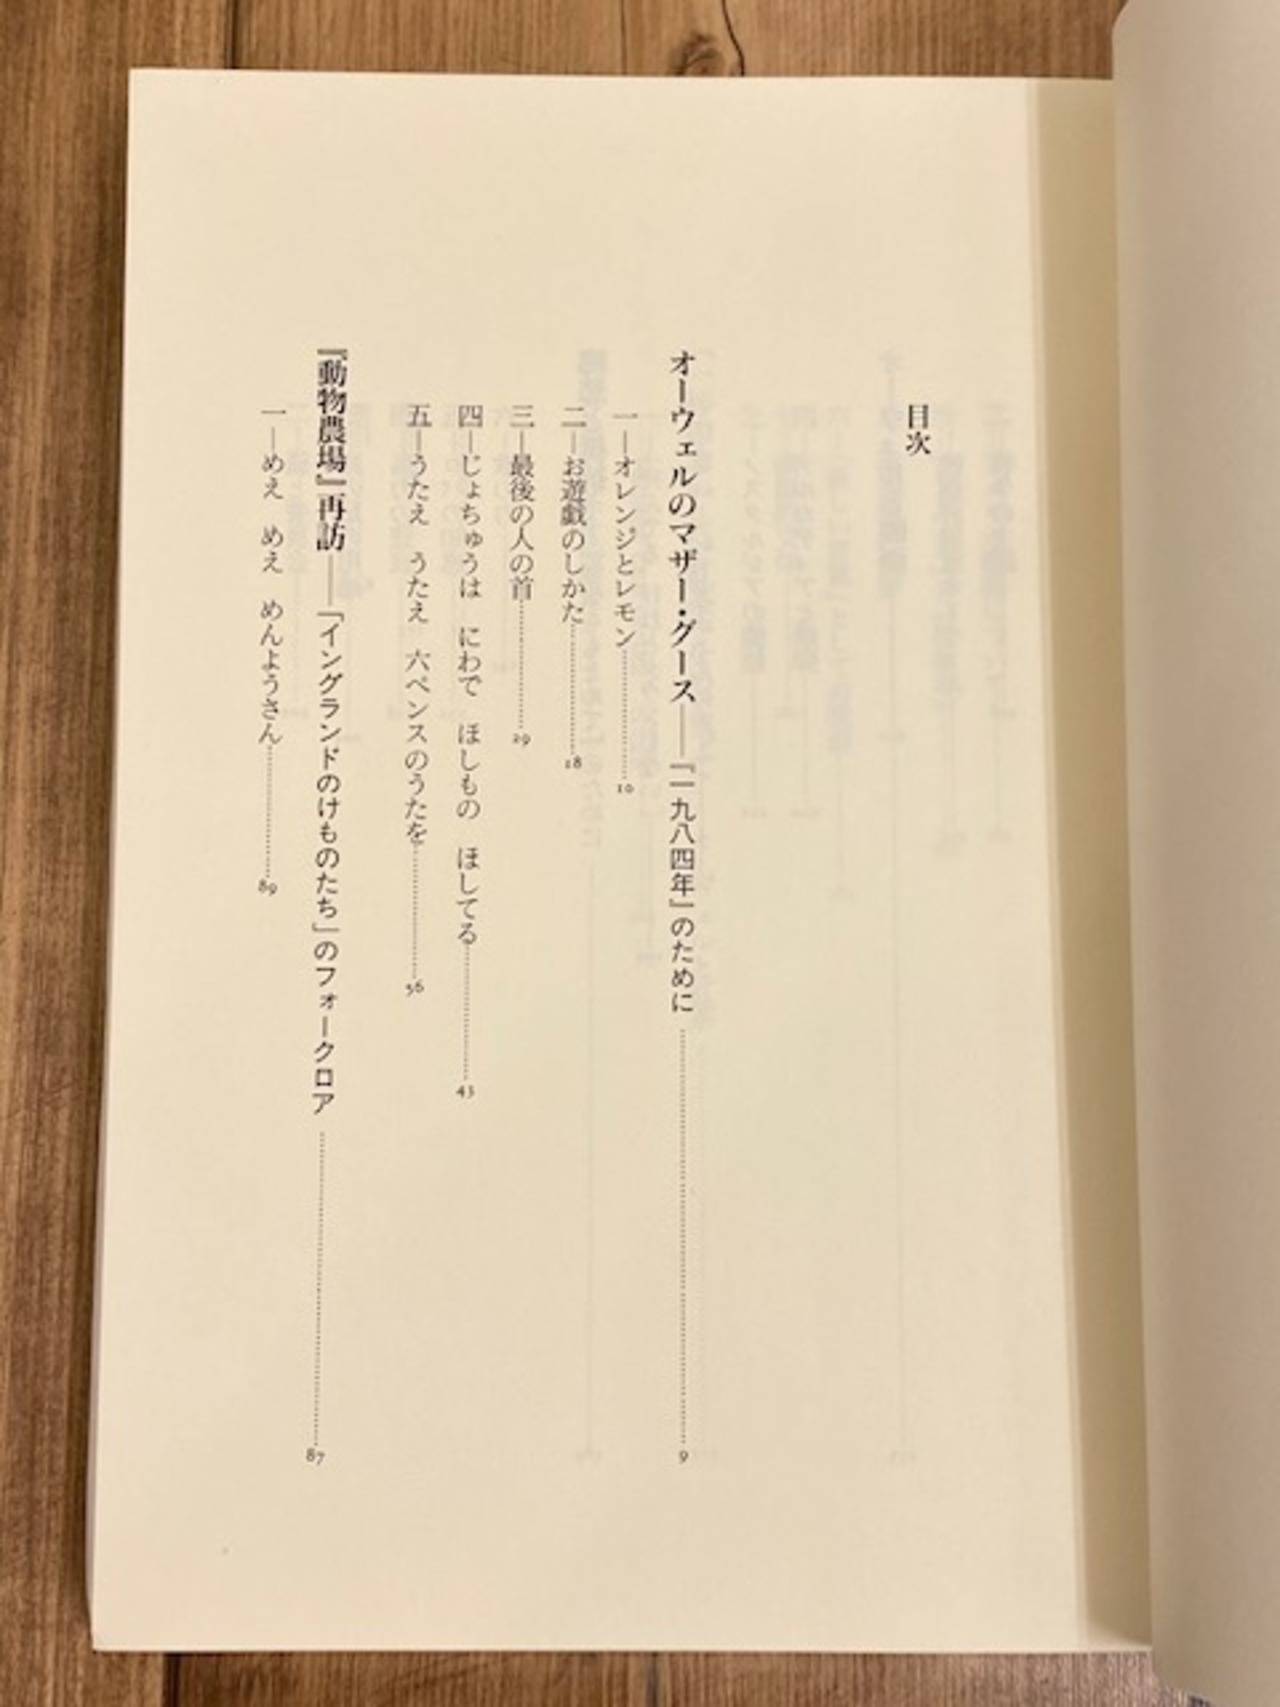 目次
オーウェルのマザー・グース——『一九八四年』のために 9
一—オレンジとレモン 10
二—お遊戯のしかた 18
三—最後の人の首 29
四—じょちゅうは にわで ほしもの ほしてる 43
五—うたえ うたえ 六ペンスのうたを 56
『動物農場』再訪——「イングランドのけものたち」のフォークロア 87
一—めえ めえ めんようさん 89